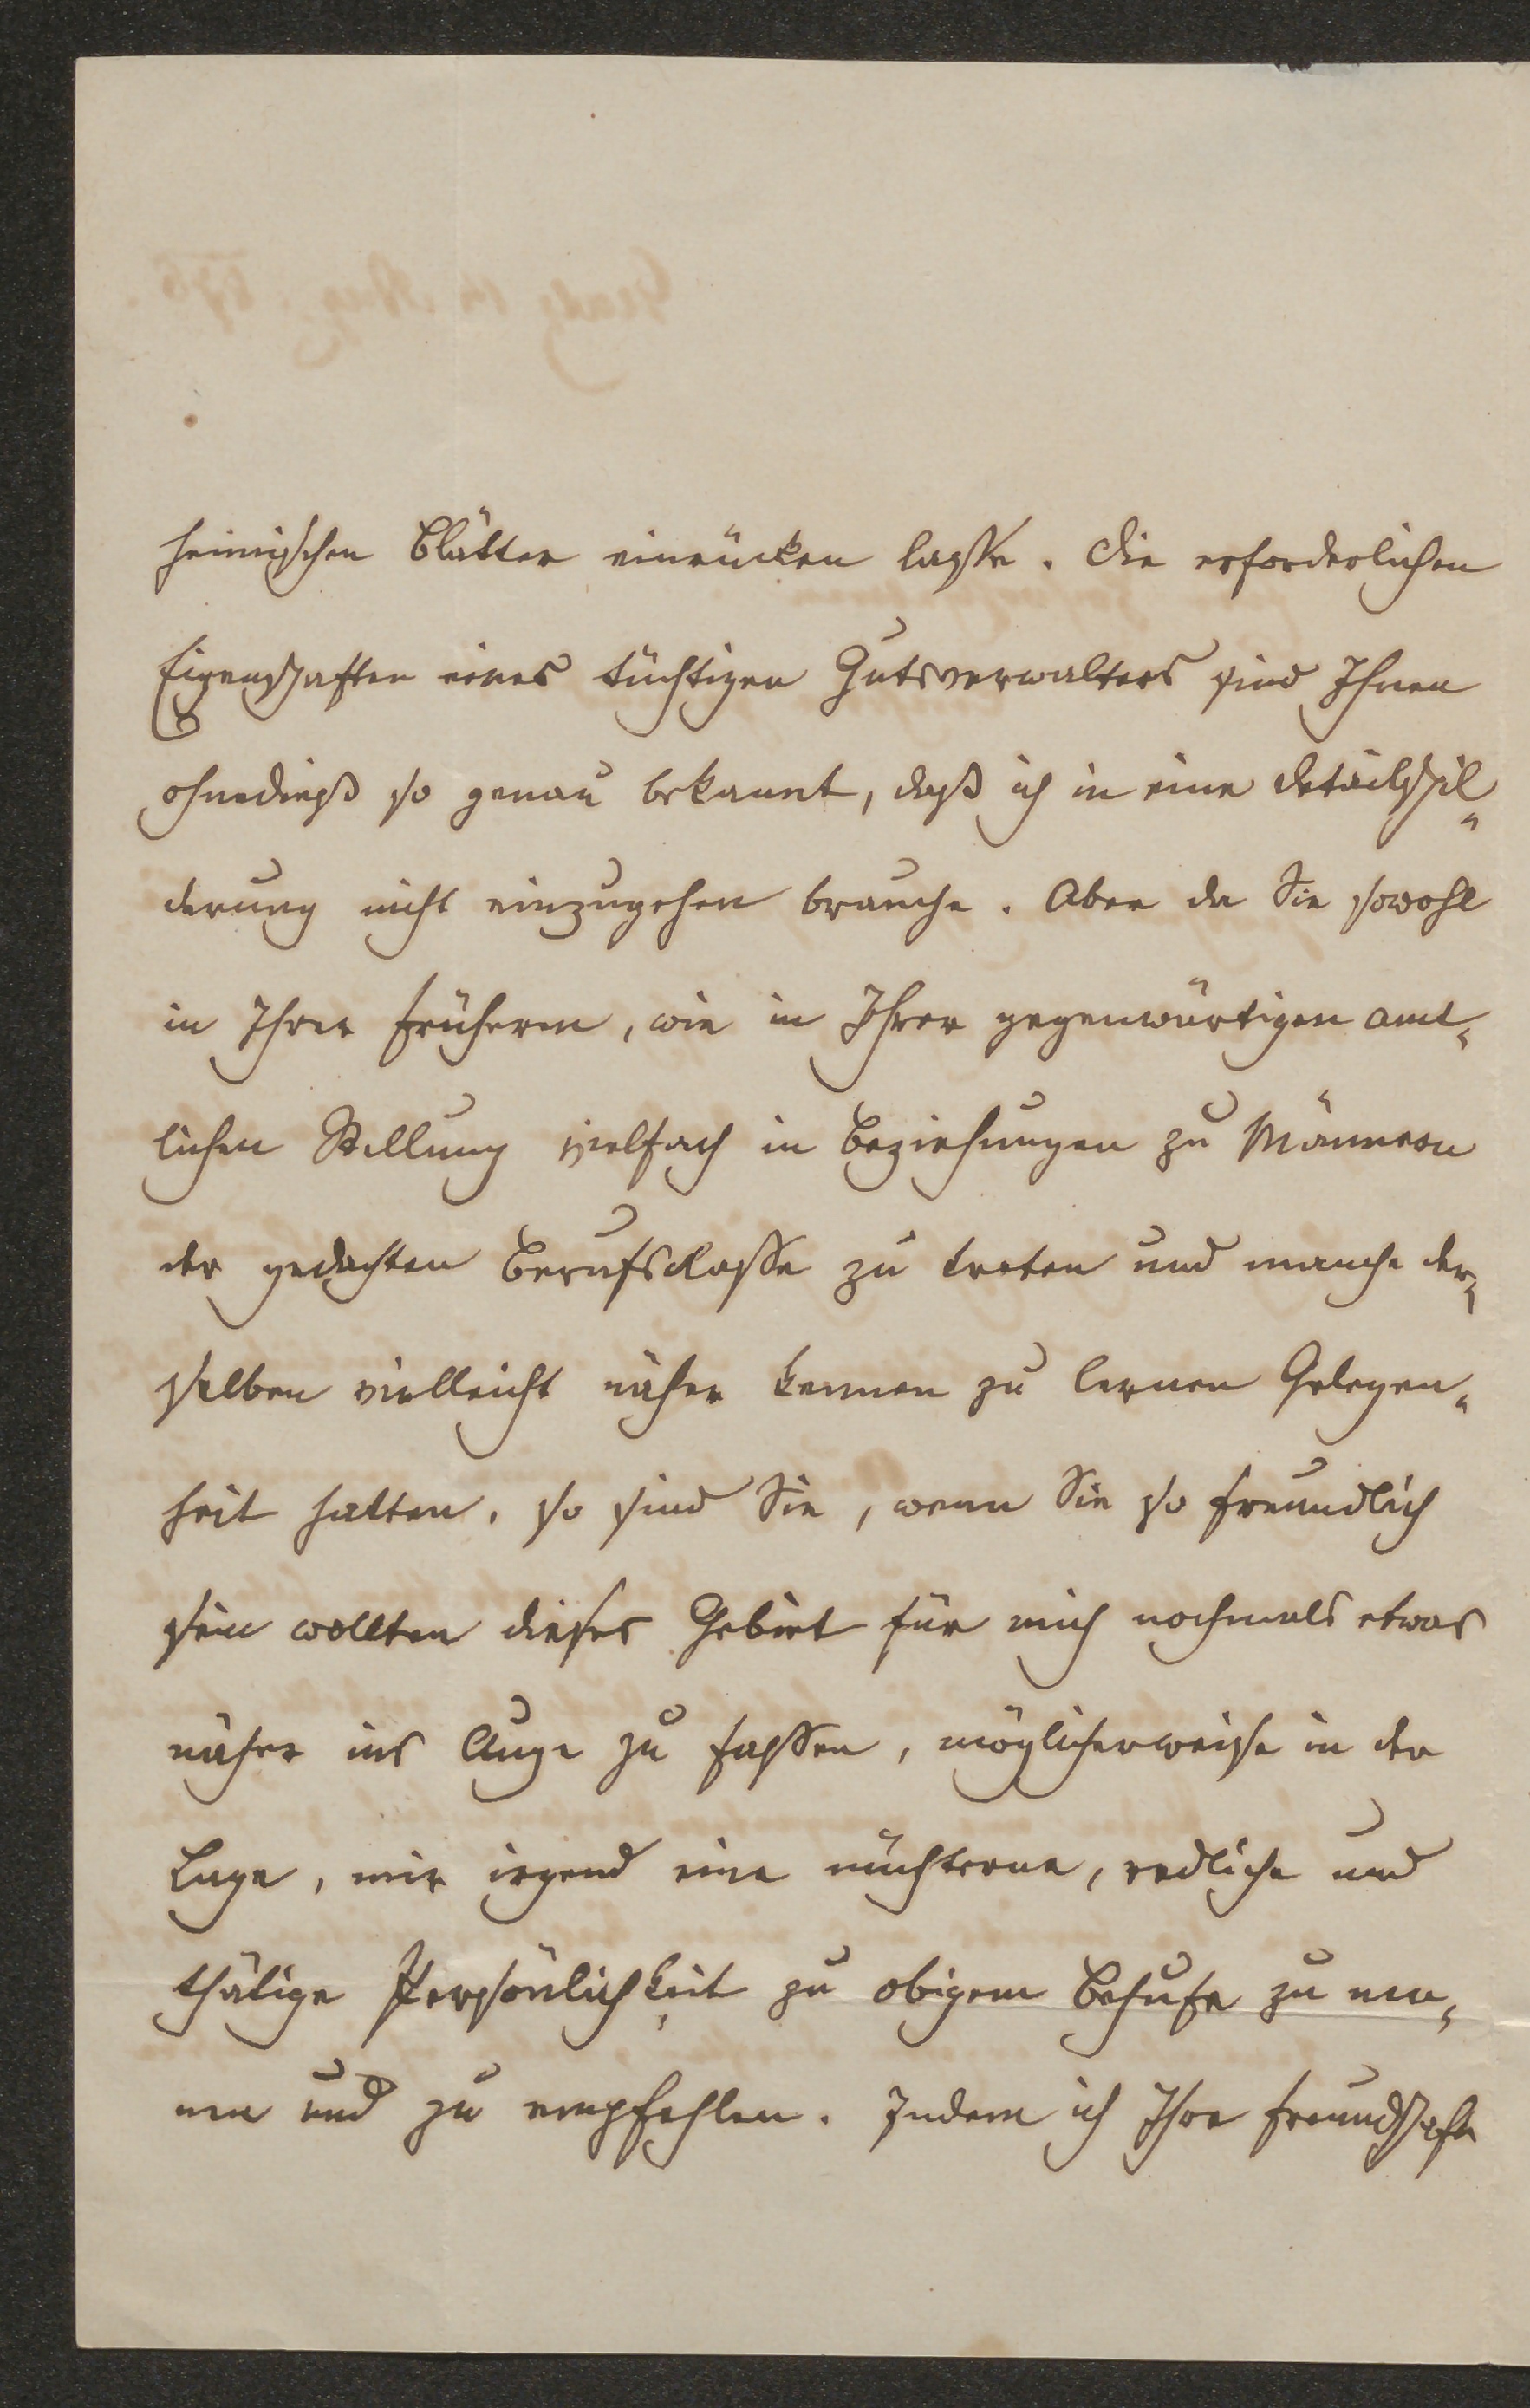 heimischen Blätter einrücken lasse. Die erforderlichen
Eigenschaften eines tüchtigen Gutsverwalters sind Ihnen
ohnedieß so genau bekannt, daß ich in eine Detailschil-
derung nicht einzugehen brauche. Aber da Sie sowohl
in Ihrer früheren, wie in Ihrer gegenwärtigen amt-
lichen Stellung vielfach in Beziehungen zu Männern
der gedachten Berufsclasse zu treten und manche der-
selben vielleicht näher kennen zu lernen Gelegen-
heit hatten, so sind Sie, wenn Sie so freundlich
sein wollten dieses Gebiet für mich nochmals etwas
näher ins Auge zu fassen, möglicherweise in der
Lage, mir irgend eine nüchterne, redliche und
thätige Persönlichkeit zu obigem Behufe zu nen-
nen und zu empfehlen. Indem ich Ihre freundschaft